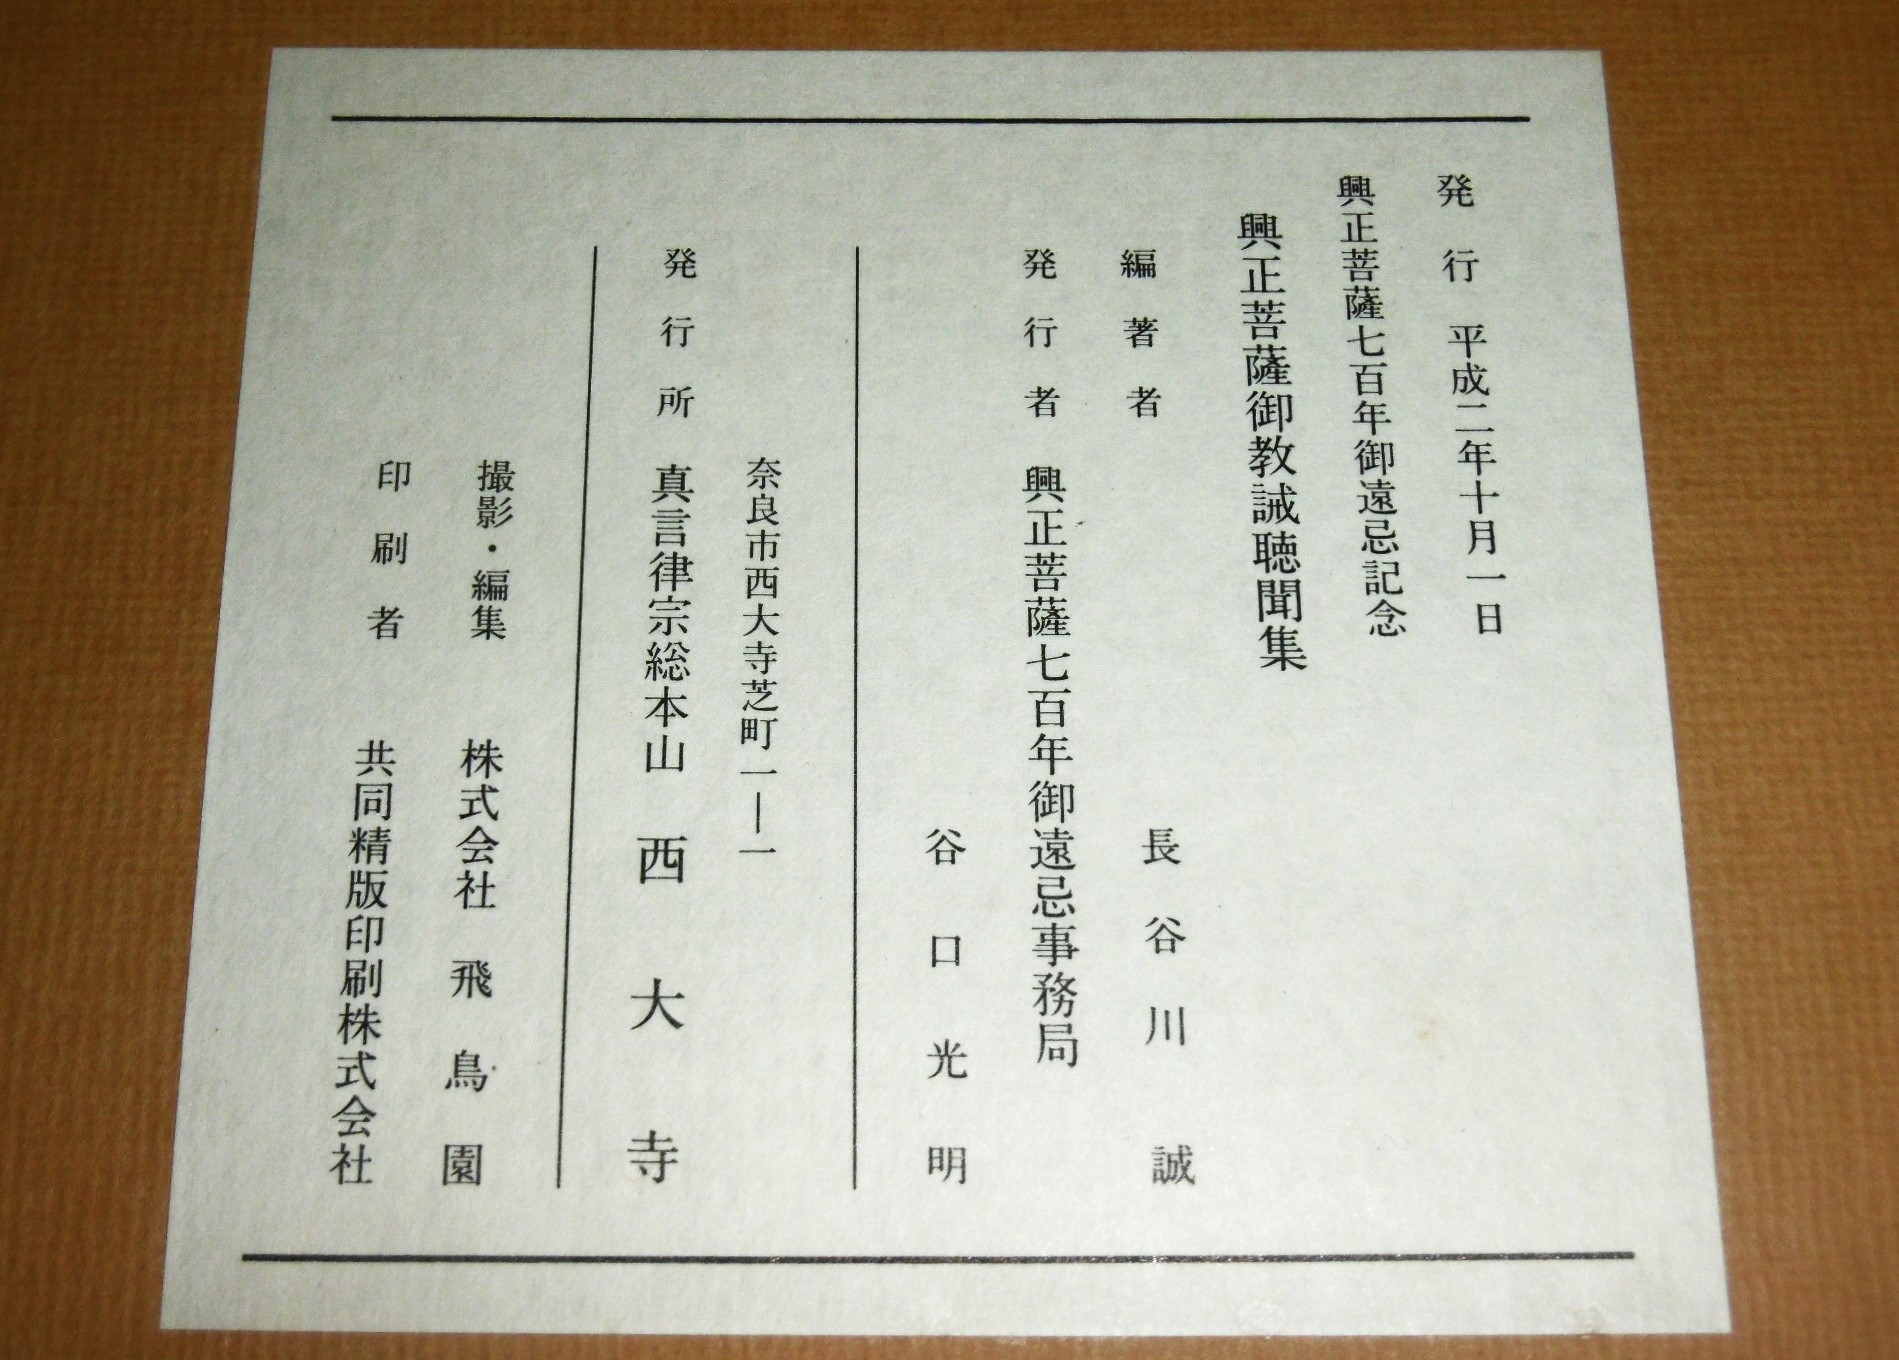 発行 平成二年十月一日
興正菩薩七百年御遠忌記念
興正菩薩御教誡聴聞集
編著者 長谷川誠
発行者 興正菩薩七百年御遠忌事務局
谷口光明
奈良市西大寺芝町一―一
発行所 真言律宗総本山 西大寺
撮影・編集 株式会社 飛鳥園
印刷者 共同精版印刷株式会社